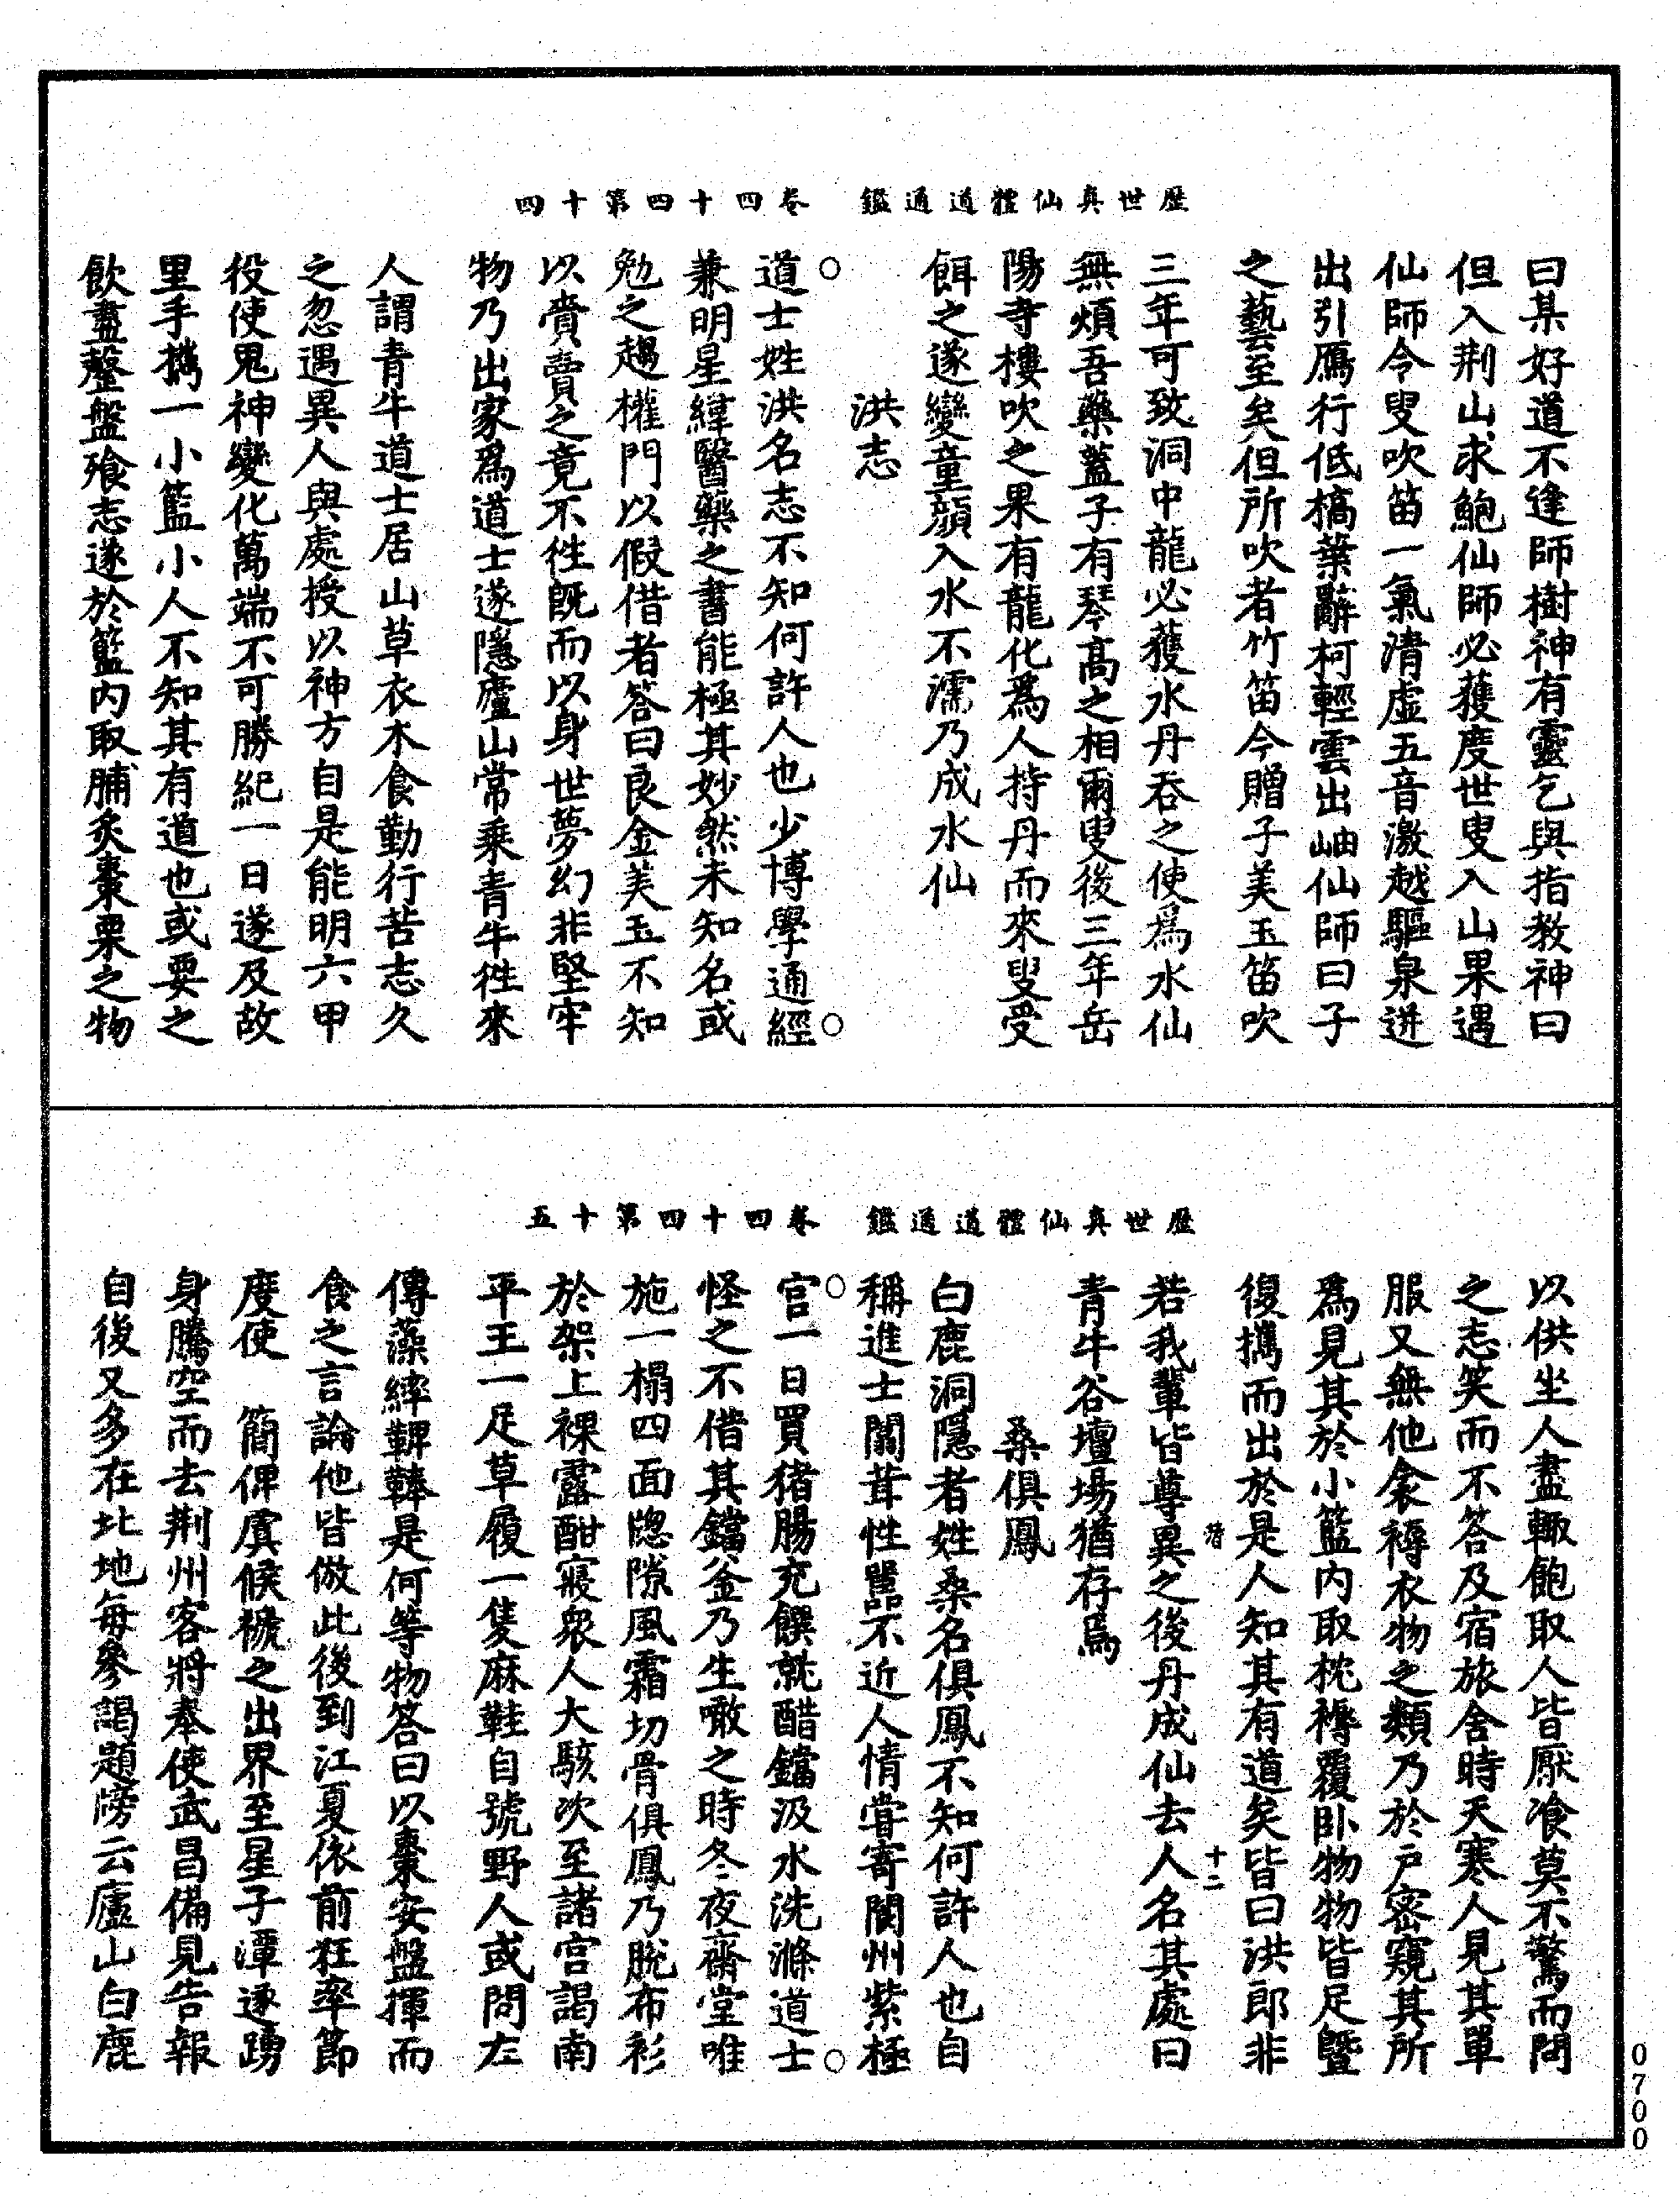 歷世真仙體道通鑑　卷四十四第十四
曰某好道不逢師樹神有靈乞與指教神曰
但入荆山求鮑仙師必獲度世叟入山果遇
仙師令叟吹笛一氣清虛五音激越驅泉迸
出引鴈行低槁葉辭柯輕雲出岫仙師曰子
之藝至矣但所吹者竹笛今贈子美玉笛吹
三年可致洞中龍必獲水丹吞之使爲水仙
無煩吾藥蓋子有琴高之相爾叟後三年岳
陽寺樓吹之果有龍化爲人持丹而來叟受
餌之遂變童顔入水不濡乃成水仙
洪志
道士姓洪名志不知何許人也少博學通經
兼明星緯醫藥之書能極其妙然未知名或
勉之趨權門以假借者答曰良金美玉不知
以賣賣之竟不徃既而以身世夢幻非堅牢
物乃出家爲道士遂隱廬山常乘青牛徃來
人謂青牛道士居山草衣木食勤行苦志久
之忽遇異人與處授以神方自是能明六甲
役使鬼神變化萬端不可勝紀一日遂及故
里手攜一小籃小人不知其有道也或要之
飲盡罄盤飱志遂於籃内取脯炙棗栗之物
歷世真仙體道通鑑　卷四十四第十五
以供坐人盡輙飽取人皆厭飡莫不驚而問
之志笑而不答及宿旅舍時天寒人見其單
服又無他衾褥衣物之類乃於戶密窺其所
爲見其於小籃内取枕褥覆卧物物皆足曁
復攜而出於是人知其有道矣皆曰洪郎非
十二
若我輩皆尊異之後丹成仙去人名其處曰
青牛谷壇場猶存焉
桑俱鳳
白鹿洞隱者姓桑名俱鳳不知何許人也自
稱進士闒茸性嚚不近人情嘗寄閬州紫極
宫一日買猪腸充饌就醋鐺汲水洗滌道士
怪之不借其鐺釜乃生噉之時冬夜齋堂唯
施一榻四面牎隙風霜切骨俱鳳乃脱布衫
於架上裸露酣寢衆人大駭次至諸宫謁南
平王一足草履一隻麻鞋自號野人或問左
傳藻繂鞞鞛是何等物答曰以棗安盤揮而
食之言論他皆倣此後到江夏依前狂率節
度使　簡俾虞候褫之出界至星子潭遂踴
身騰空而去荆州客將奉使武昌備見告報
自後又多在北地每參謁題牓云廬山白鹿
0700